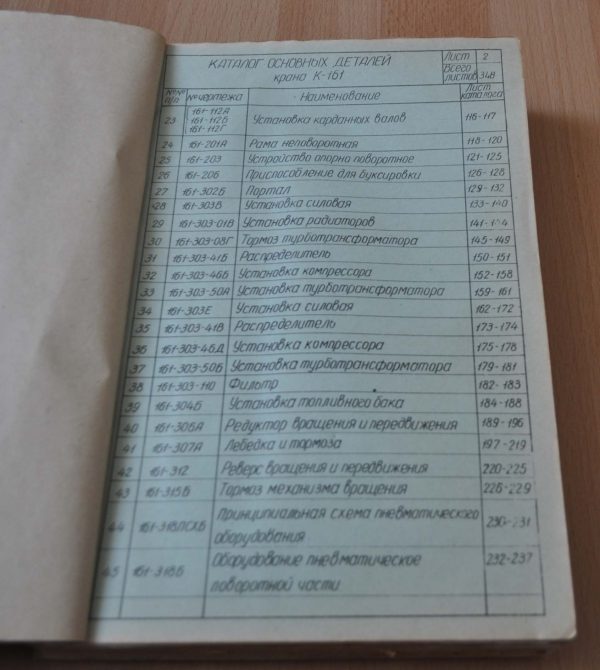 КАТАЛОГ ОСНОВНЫХ ДЕТАЛЕЙ
крана К-161
Лист 2
Всего листов 348
№№ п/п № чертежа Наименование Лист каталога
161-112А
23 161-112Б Установка карданных валов 116-117
161-112Г
24 161-201А Рама неповоротная 118-120
25 161-203 Устройство опорно поворотное 121-125
26 161-206 Приспособление для буксировки 126-128
27 161-302Б Портал 129-132
28 161-303В Установка силовая 133-140
29 161-303-01В Установка радиаторов 141-144
30 161-303-03Г Тормоз турботрансформатора 145-149
31 161-303-41Б Распределитель 150-151
32 161-303-46Б Установка компрессора 152-158
33 161-303-50А Установка турботрансформатора 159-161
34 161-303Е Установка силовая 162-172
35 161-303-41В Распределитель 173-174
36 161-303-46Д Установка компрессора 175-178
37 161-303-50Б Установка турботрансформатора 179-181
38 161-303-110 Фильтр 182-183
39 161-304Б Установка топливного бака 184-188
40 161-306А Редуктор вращения и передвижения 189-196
41 161-307А Лебедка и тормоза 197-219
42 161-312 Реверс вращения и передвижения 220-225
43 161-315Б Тормоз механизма вращения 226-229
44 161-318ПСХБ Принципиальная схема пневматического 230-231
оборудования
45 161-318Б Оборудование пневматическое 232-237
поворотной части